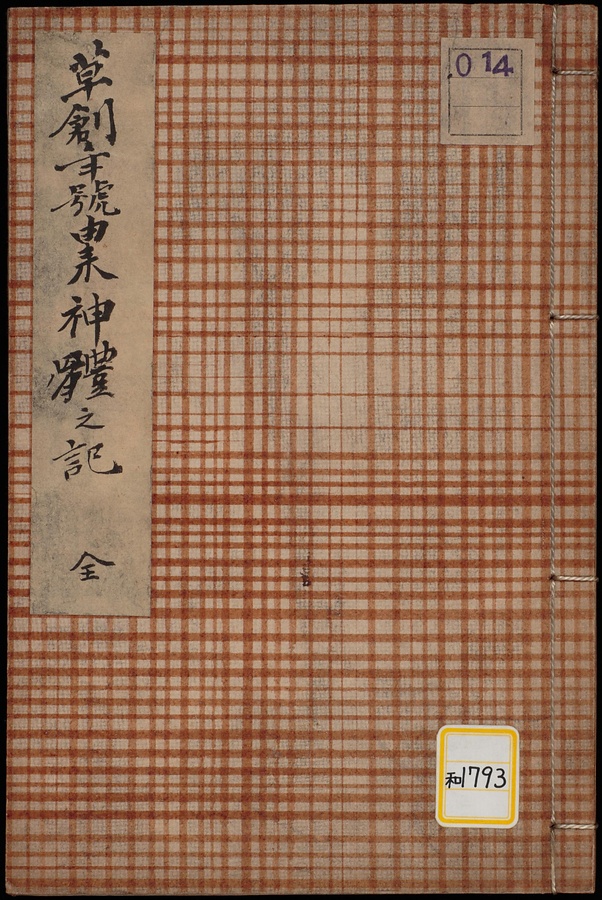 草創年號由来神體之記 全
014
和1793